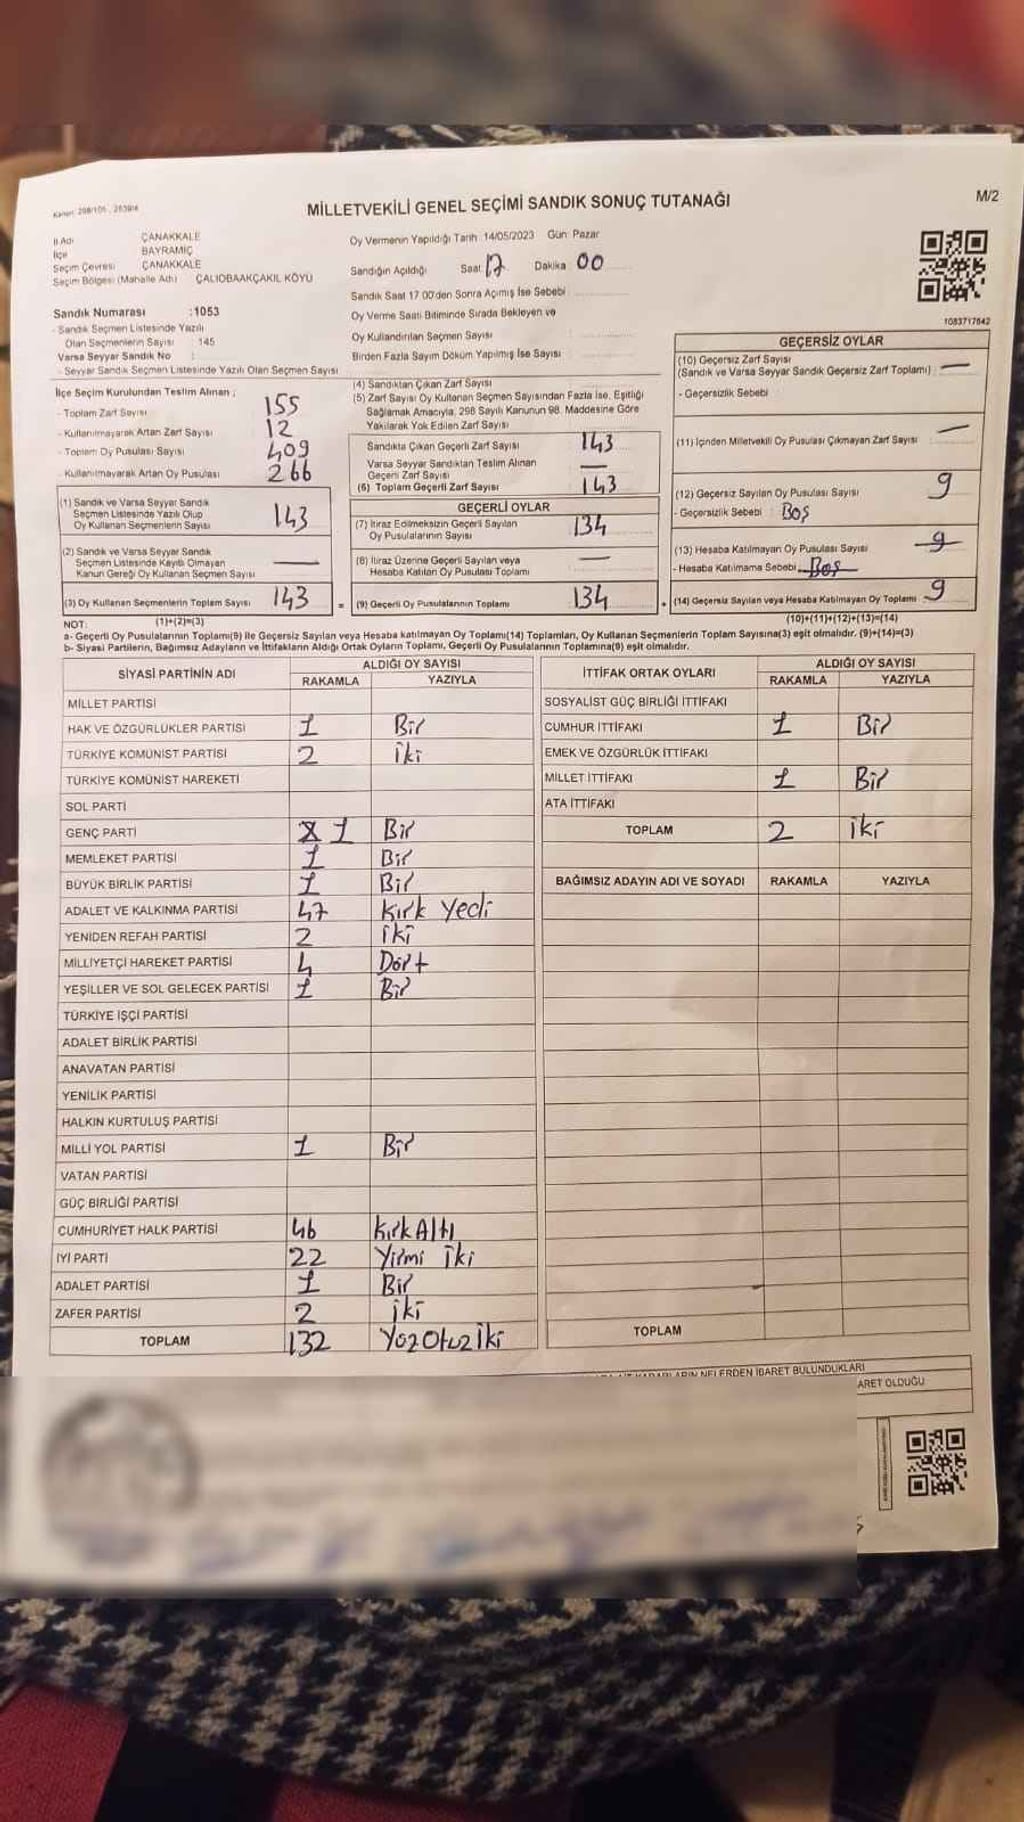 MİLLETVEKİLİ GENEL SEÇİMİ SANDIK SONUÇ TUTANAĞI
M/2
İl Adı ÇANAKKALE
İlçe BAYRAMİÇ
Seçim Çevresi ÇANAKKALE
Seçim Bölgesi (Mahalle Adı) ÇALIOBAAKÇAKIL KÖYÜ
Sandık Numarası : 1053
- Sandık Seçmen Listesinde Yazılı
Olan Seçmenlerin Sayısı : 145
Varsa Seyyar Sandık No :
- Seyyar Sandık Seçmen Listesinde Yazılı Olan Seçmen Sayısı
Oy Vermenin Yapıldığı Tarih :14/05/2023 Gün: Pazar
Sandığın Açıldığı Saat 17 Dakika 00
Sandık Saat 17 00'den Sonra Açılmış İse Sebebi
Oy Verme Saati Bitiminde Sırada Bekleyen ve
Oy Kullandırılan Seçmen Sayısı
Birden Fazla Sayım Döküm Yapılmış İse Sayısı
1083717642
İlçe Seçim Kurulundan Teslim Alınan ;
- Toplam Zarf Sayısı 155
- Kullanılmayarak Artan Zarf Sayısı 12
- Toplam Oy Pusulası Sayısı 409
- Kullanılmayarak Artan Oy Pusulası 266
(1) Sandık ve Varsa Seyyar Sandık
Seçmen Listesinde Yazılı Olup
Oy Kullanan Seçmenlerin Sayısı 143
(2) Sandık ve Varsa Seyyar Sandık
Seçmen Listesinde Kayıtlı Olmayan
Kanun Gereği Oy Kullanan Seçmen Sayısı —
(3) Oy Kullanan Seçmenlerin Toplam Sayısı 143
(1)+(2)=(3)
(4) Sandıktan Çıkan Zarf Sayısı
(5) Zarf Sayısı Oy Kullanan Seçmen Sayısından Fazla İse, Eşitliği
Sağlamak Amacıyla, 298 Sayılı Kanunun 98. Maddesine Göre
Yakılarak Yok Edilen Zarf Sayısı
Sandıkta Çıkan Geçerli Zarf Sayısı 143
Varsa Seyyar Sandıktan Teslim Alınan
Geçerli Zarf Sayısı —
(6) Toplam Geçerli Zarf Sayısı 143
GEÇERLİ OYLAR
(7) İtiraz Edilmeksizin Geçerli Sayılan
Oy Pusulalarının Sayısı 134
(8) İtiraz Üzerine Geçerli Sayılan veya
Hesaba Katılan Oy Pusulası Toplamı —
= (9) Geçerli Oy Pusulalarının Toplamı 134
GEÇERSİZ OYLAR
(10) Geçersiz Zarf Sayısı
(Sandık ve Varsa Seyyar Sandık Geçersiz Zarf Toplamı) —
- Geçersizlik Sebebi
(11) İçinden Milletvekili Oy Pusulası Çıkmayan Zarf Sayısı —
(12) Geçersiz Sayılan Oy Pusulası Sayısı 9
- Geçersizlik Sebebi : Boş
(13) Hesaba Katılmayan Oy Pusulası Sayısı 9
- Hesaba Katılmama Sebebi Boş
+ (14) Geçersiz Sayılan veya Hesaba Katılmayan Oy Toplamı 9
(10)+(11)+(12)+(13)=(14)
NOT:
a- Geçerli Oy Pusulalarının Toplamı(9) ile Geçersiz Sayılan veya Hesaba katılmayan Oy Toplamı(14) Toplamları, Oy Kullanan Seçmenlerin Toplam Sayısına(3) eşit olmalıdır. (9)+(14)=(3)
b- Siyasi Partilerin, Bağımsız Adayların ve İttifakların Aldığı Ortak Oyların Toplamı, Geçerli Oy Pusulalarının Toplamına(9) eşit olmalıdır.
SİYASİ PARTİNİN ADI ALDIĞI OY SAYISI
RAKAMLA YAZIYLA
MİLLET PARTİSİ
HAK VE ÖZGÜRLÜKLER PARTİSİ 1 Bir
TÜRKİYE KOMÜNİST PARTİSİ 2 iki
TÜRKİYE KOMÜNİST HAREKETİ
SOL PARTİ
GENÇ PARTİ 1 Bir
MEMLEKET PARTİSİ 1 Bir
BÜYÜK BİRLİK PARTİSİ 1 Bir
ADALET VE KALKINMA PARTİSİ 47 Kırk Yedi
YENİDEN REFAH PARTİSİ 2 iki
MİLLİYETÇİ HAREKET PARTİSİ 4 Dört
YEŞİLLER VE SOL GELECEK PARTİSİ 1 Bir
TÜRKİYE İŞÇİ PARTİSİ
ADALET BİRLİK PARTİSİ
ANAVATAN PARTİSİ
YENİLİK PARTİSİ
HALKIN KURTULUŞ PARTİSİ
MİLLİ YOL PARTİSİ 1 Bir
VATAN PARTİSİ
GÜÇ BİRLİĞİ PARTİSİ
CUMHURİYET HALK PARTİSİ 46 Kırk Altı
İYİ PARTİ 22 Yirmi iki
ADALET PARTİSİ 1 Bir
ZAFER PARTİSİ 2 iki
TOPLAM 132 Yüz Otuz iki
İTTİFAK ORTAK OYLARI ALDIĞI OY SAYISI
RAKAMLA YAZIYLA
SOSYALİST GÜÇ BİRLİĞİ İTTİFAKI
CUMHUR İTTİFAKI 1 Bir
EMEK VE ÖZGÜRLÜK İTTİFAKI
MİLLET İTTİFAKI 1 Bir
ATA İTTİFAKI
TOPLAM 2 iki
BAĞIMSIZ ADAYIN ADI VE SOYADI RAKAMLA YAZIYLA
TOPLAM
NELERDEN İBARET BULUNDUKLARI
ARET OLDUĞU